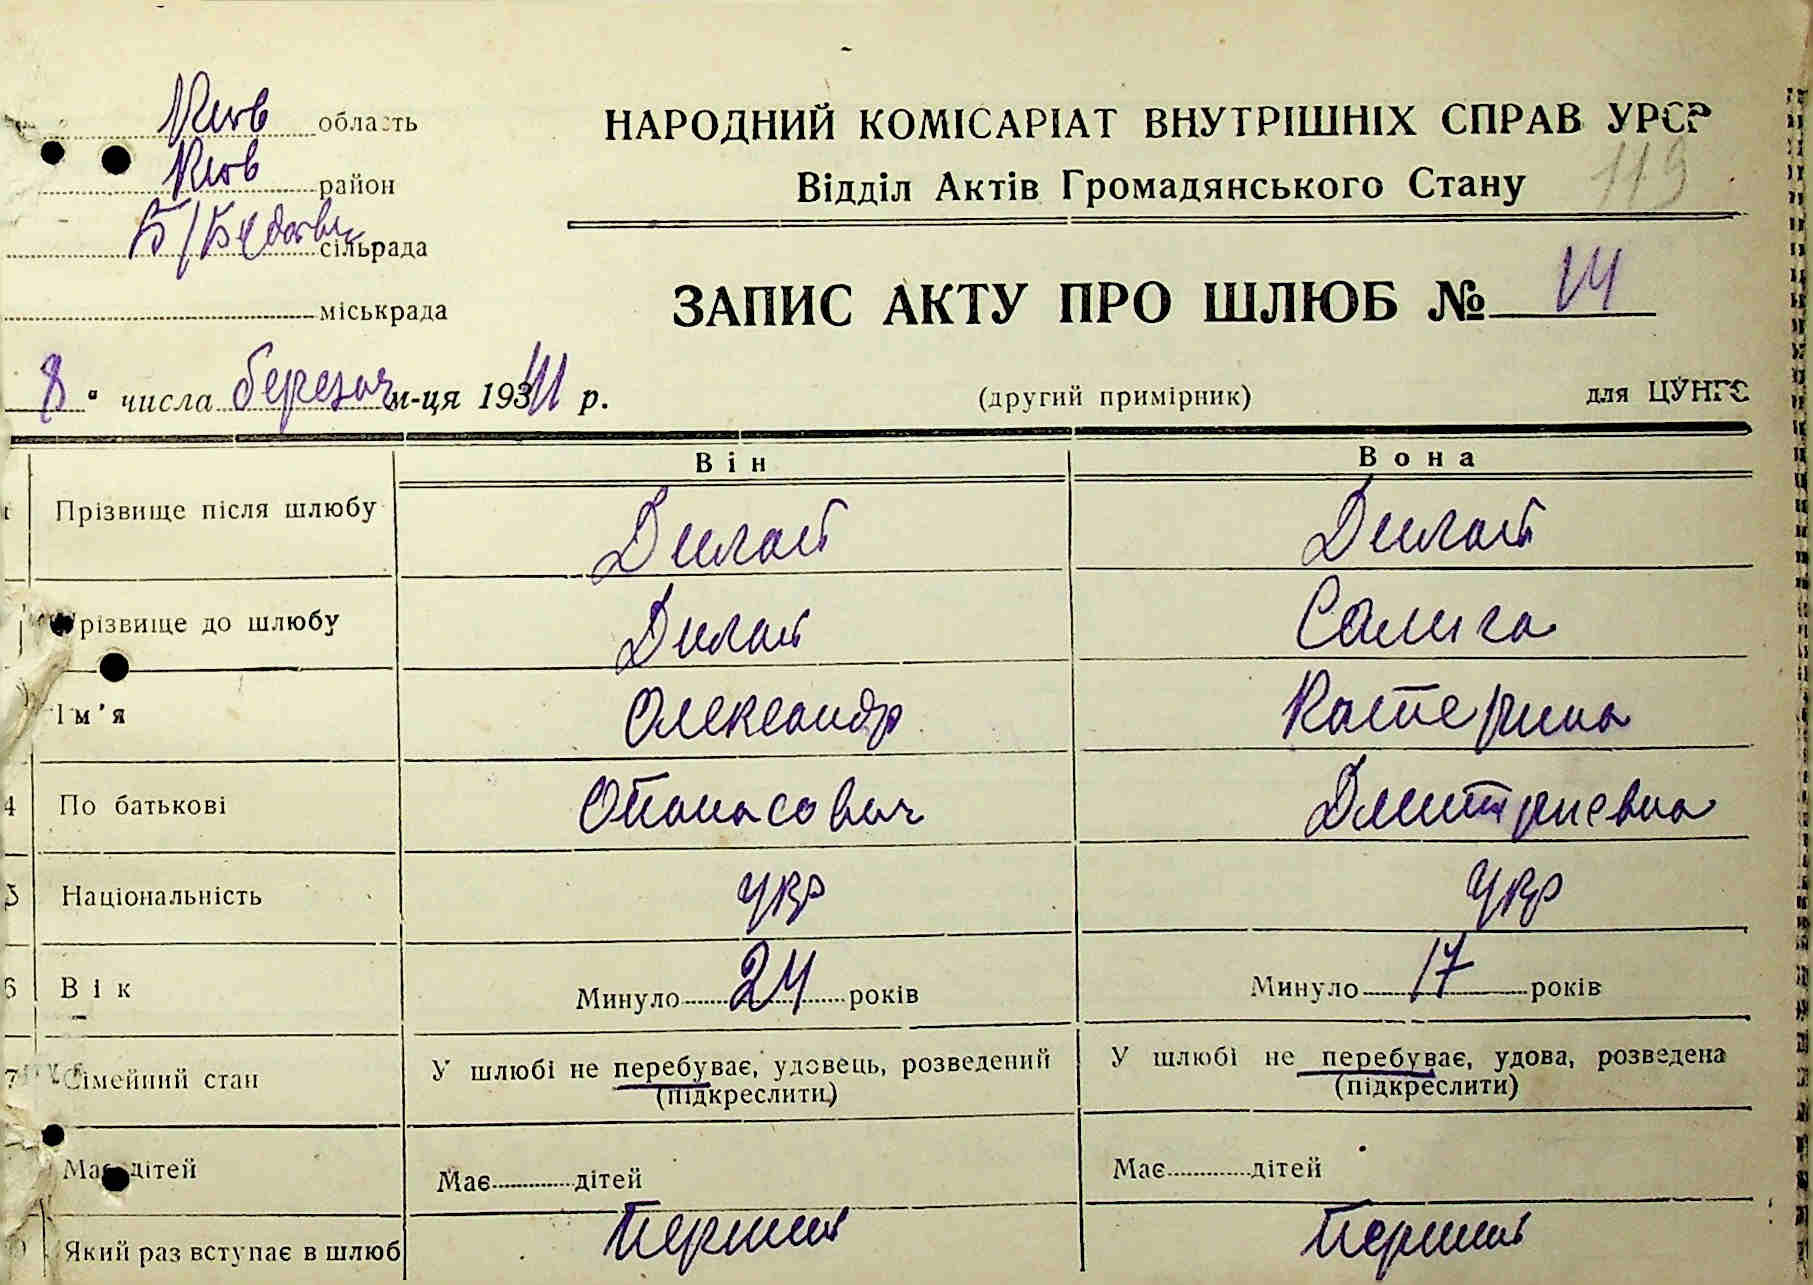 Київ область
Київ район
сільрада
міськрада
НАРОДНИЙ КОМІСАРІАТ ВНУТРІШНІХ СПРАВ УРСР
Відділ Актів Громадянського Стану
119
ЗАПИС АКТУ ПРО ШЛЮБ № 14
8 " числа березня м-ця 1941 р.
(другий примірник)
для ЦУНГО
Він
Вона
Прізвище після шлюбу
Прізвище до шлюбу
Салига
Ім'я Олександр Катерина
4 По батькові Опанасович Дмитриевна
5 Національність укр укр
6 Вік Минуло 24 років Минуло 17 років
7 Сімейний стан У шлюбі не перебуває, удовець, розведений У шлюбі не перебуває, удова, розведена
(підкреслити) (підкреслити)
Має дітей Має дітей Має дітей
Який раз вступає в шлюб Перший Перший